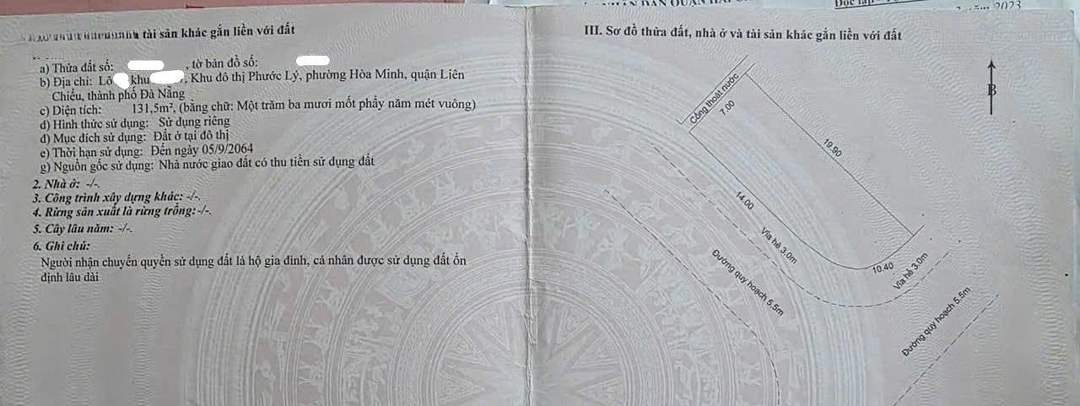 tài sản khác gắn liền với đất
a) Thửa đất số: , tờ bản đồ số:
b) Địa chỉ: Lô khu , Khu đô thị Phước Lý, phường Hòa Minh, quận Liên
Chiểu, thành phố Đà Nẵng
c) Diện tích: 131,5m², (bằng chữ: Một trăm ba mươi mốt phẩy năm mét vuông)
d) Hình thức sử dụng: Sử dụng riêng
đ) Mục đích sử dụng: Đất ở tại đô thị
e) Thời hạn sử dụng: Đến ngày 05/9/2064
g) Nguồn gốc sử dụng: Nhà nước giao đất có thu tiền sử dụng đất
2. Nhà ở: -/-.
3. Công trình xây dựng khác: -/-.
4. Rừng sản xuất là rừng trồng: -/-.
5. Cây lâu năm: -/-.
6. Ghi chú:
Người nhận chuyển quyền sử dụng đất là hộ gia đình, cá nhân được sử dụng đất ổn
định lâu dài
2023
III. Sơ đồ thửa đất, nhà ở và tài sản khác gắn liền với đất
B
Cống thoát nước
7.00
19.90
14.00
Vỉa hè 3.0m
Đường quy hoạch 5.5m
10.40
Vỉa hè 3.0m
Đường quy hoạch 5.5m